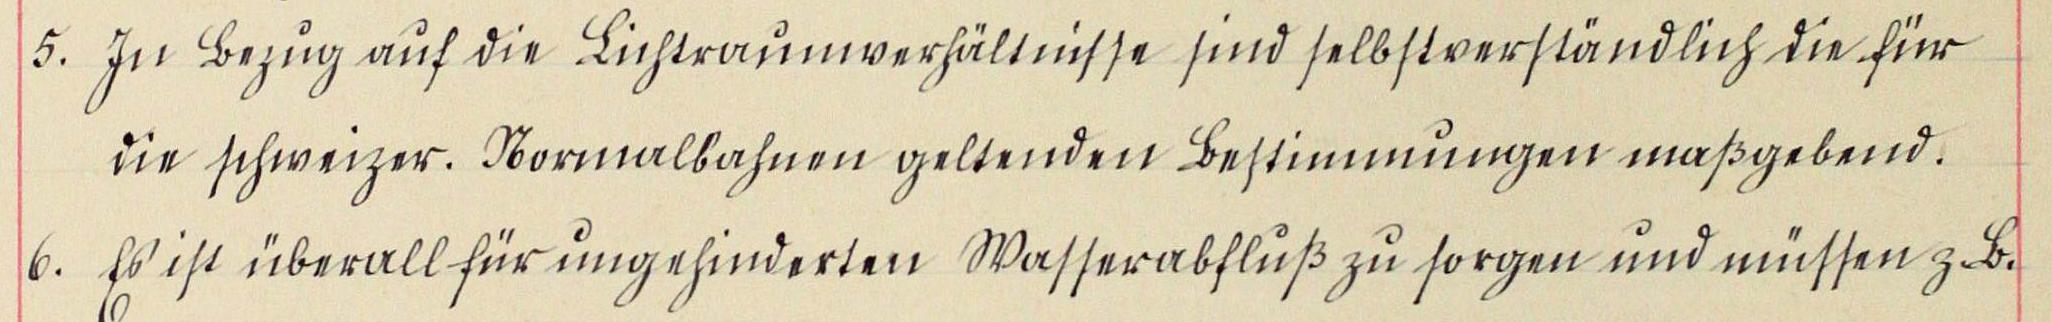 5. In Bezug auf die Lichtraumverhältnisse sind selbstverständlich die für
die schweizer. Normalbahnen geltenden Bestimmungen maßgebend.
6. Es ist überall für ungehinderten Wasserabfluß zu sorgen und müssen z. B.